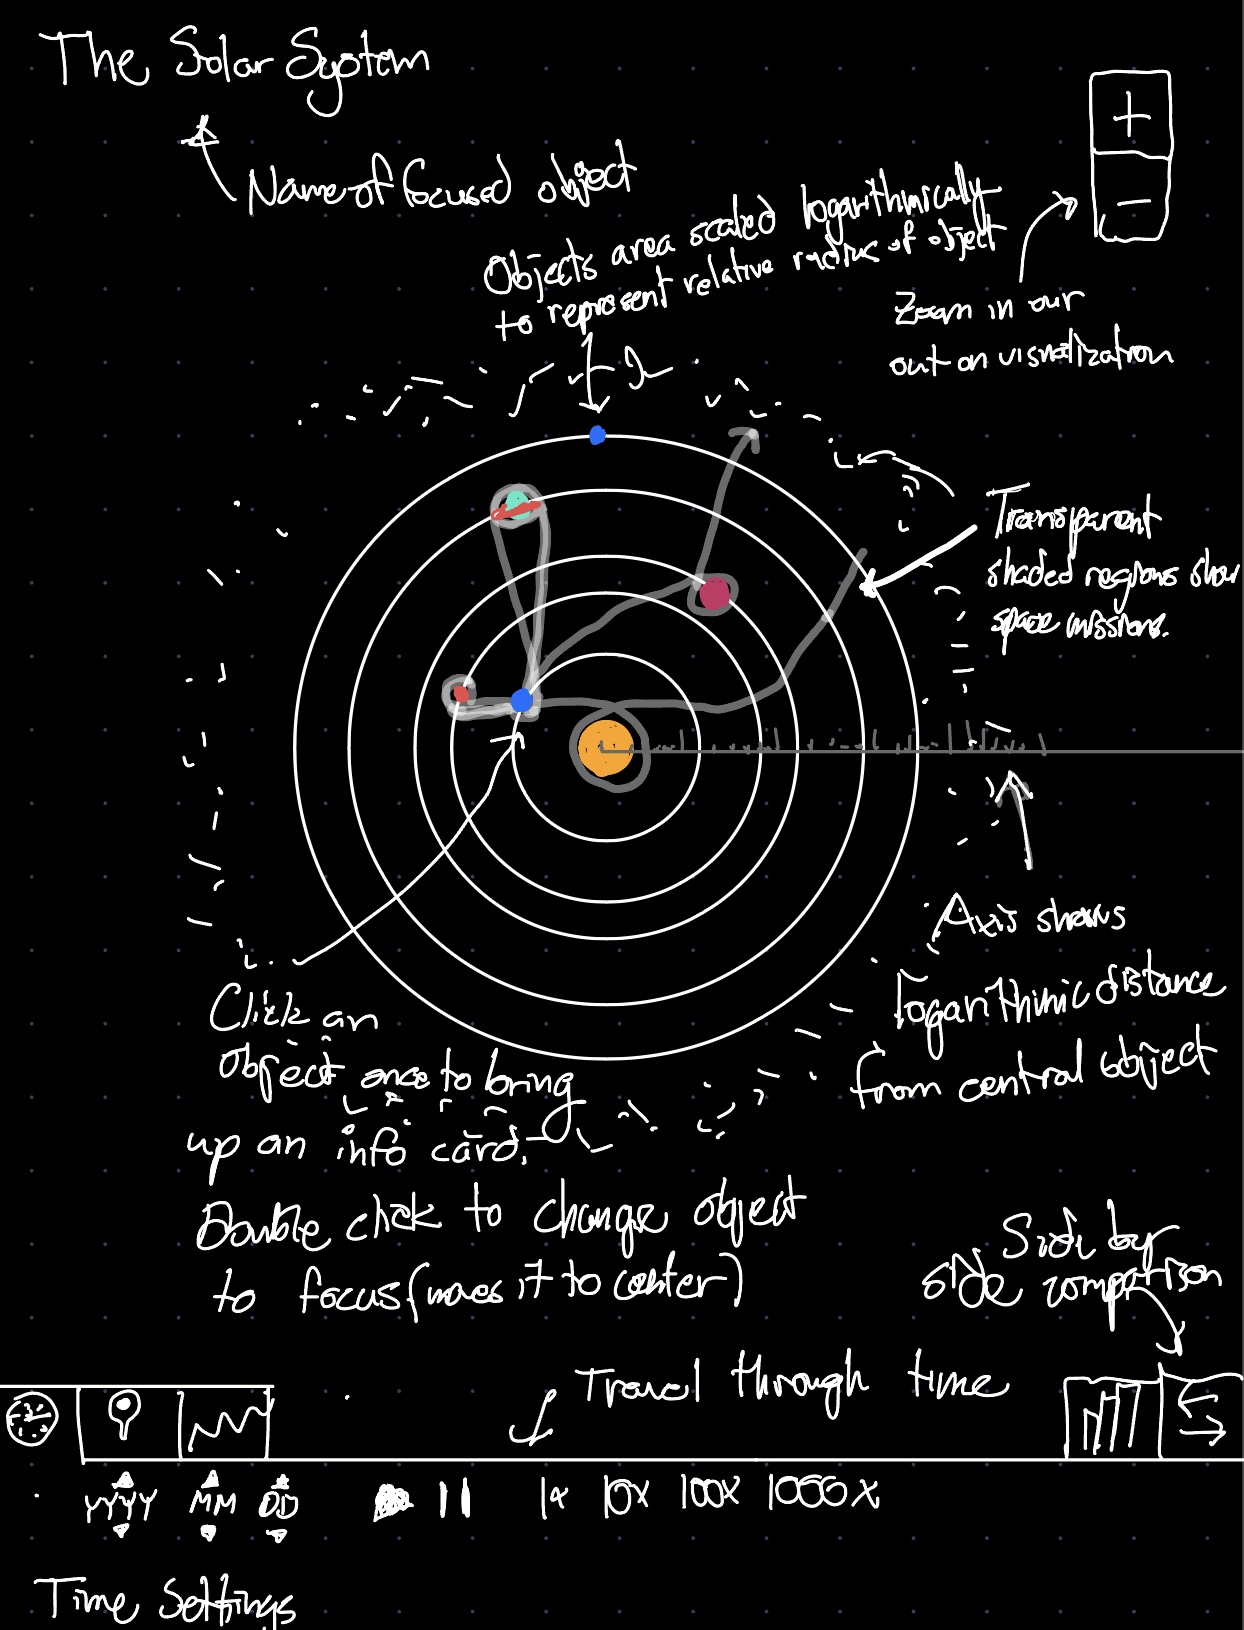 The Solar System
Name of focused object
+
-
Objects area scaled logarithmically
to represent relative radius of object
Zoom in our
out on visualization
Transparent
shaded regions show
space missions.
Axis shows
logarithmic distance
from central object
Click an
object once to bring
up an info card.
Double click to change object
to focus (moves it to center)
Side by
side comparison
Travel through time
YYYY MM DD
1x 10x 100x 1000x
Time Settings